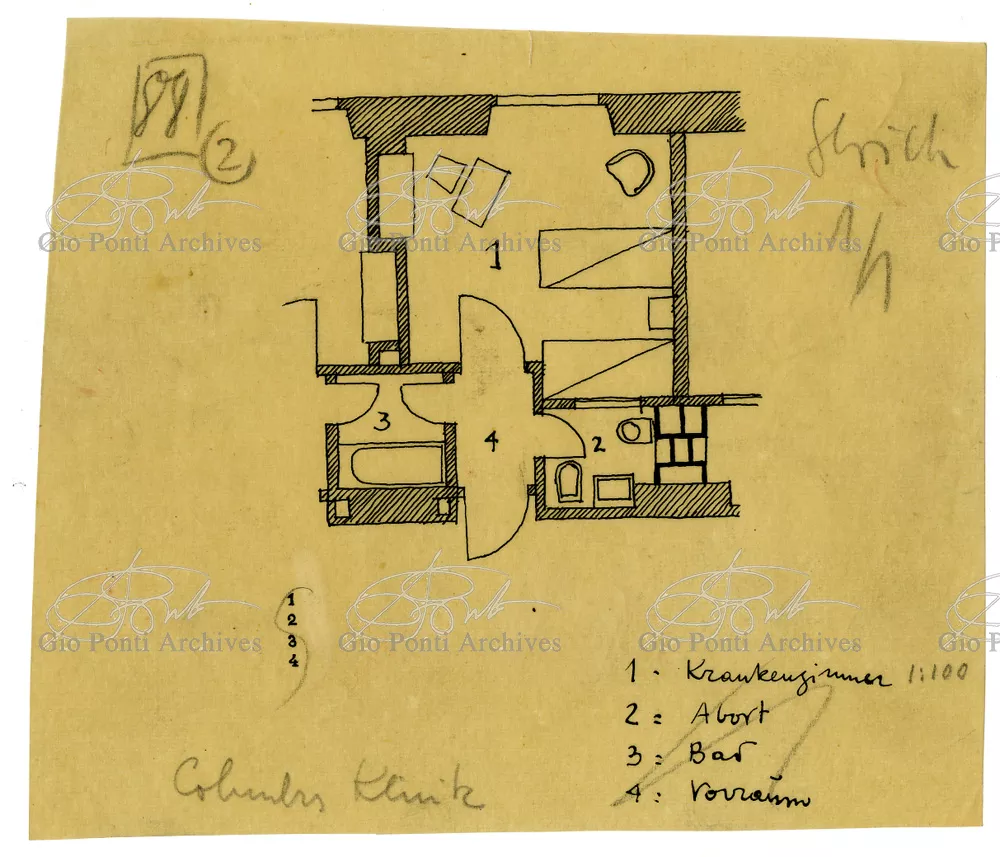 2
Gio Ponti Archives Gio Ponti Archives Gio Ponti Archives Gio Ponti Archives
1
3
4
2
1
2
3
4
Gio Ponti Archives Gio Ponti Archives Gio Ponti Archives Gio Ponti Archives
1 - Krankenzimmer 1:100
2 = Abort
3 = Bad
4 : Vorraum
Columbus Klinik